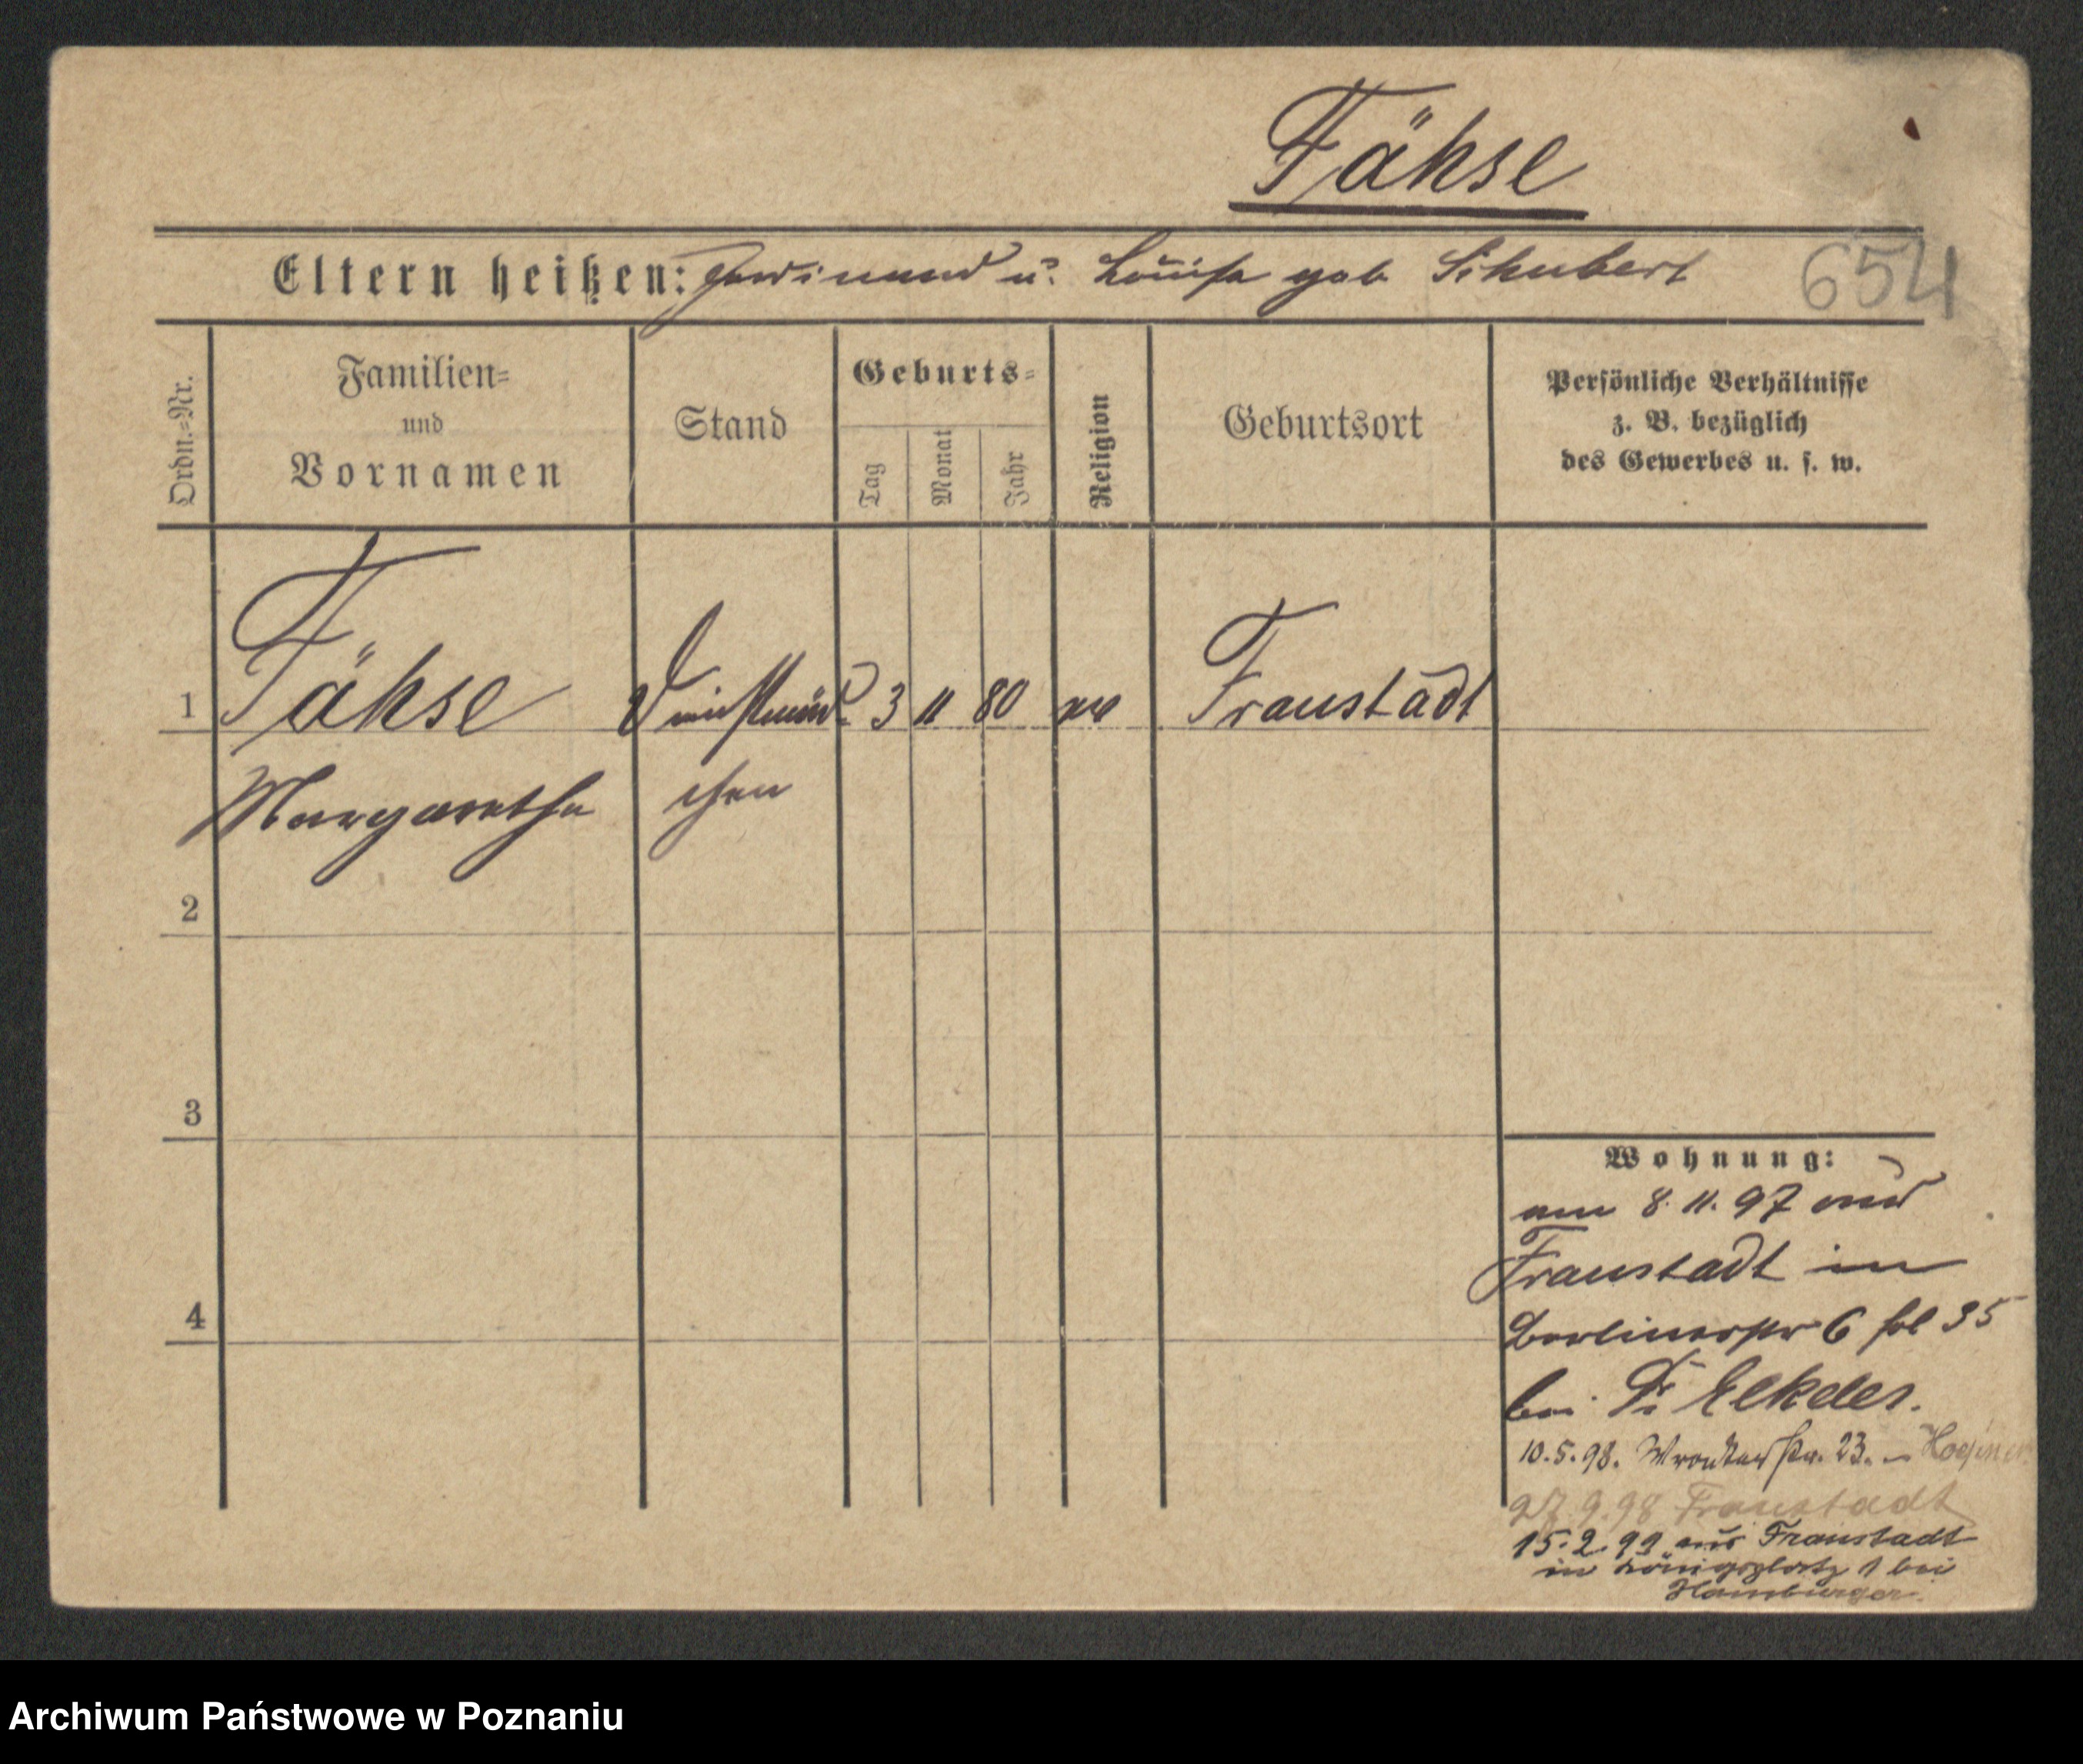 Fähse
Eltern heißen: Ferdinand u. Louise geb Schubert
654
Ordn.=Nr.
Familien=
und
Vornamen
Stand
Geburts=
Tag
Monat
Jahr
Religion
Geburtsort
Persönliche Verhältnisse
z. B. bezüglich
des Gewerbes u. s. w.
1 Fähse Dienstmäd= 3 11 80 ev Fraustadt
Margarethe chen
2
3
4
Wohnung:
am 8. 11. 97 aus
Fraustadt in
Berlinerstr 6 fol 35
bei Dr Elkeles.
10.5.98. Wronkerstr. 23.
27 9. 98 Fraustadt
15. 2. 99 aus Fraustadt
in Königsplatz 1 bei
Hamburger.
Archiwum Państwowe w Poznaniu